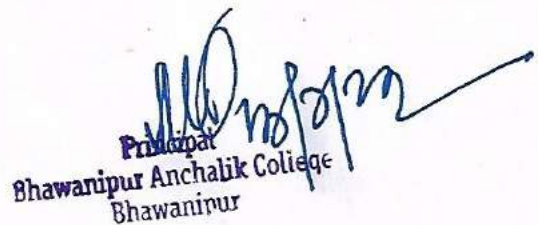 Principal
Bhawanipur Anchalik College
Bhawanipur